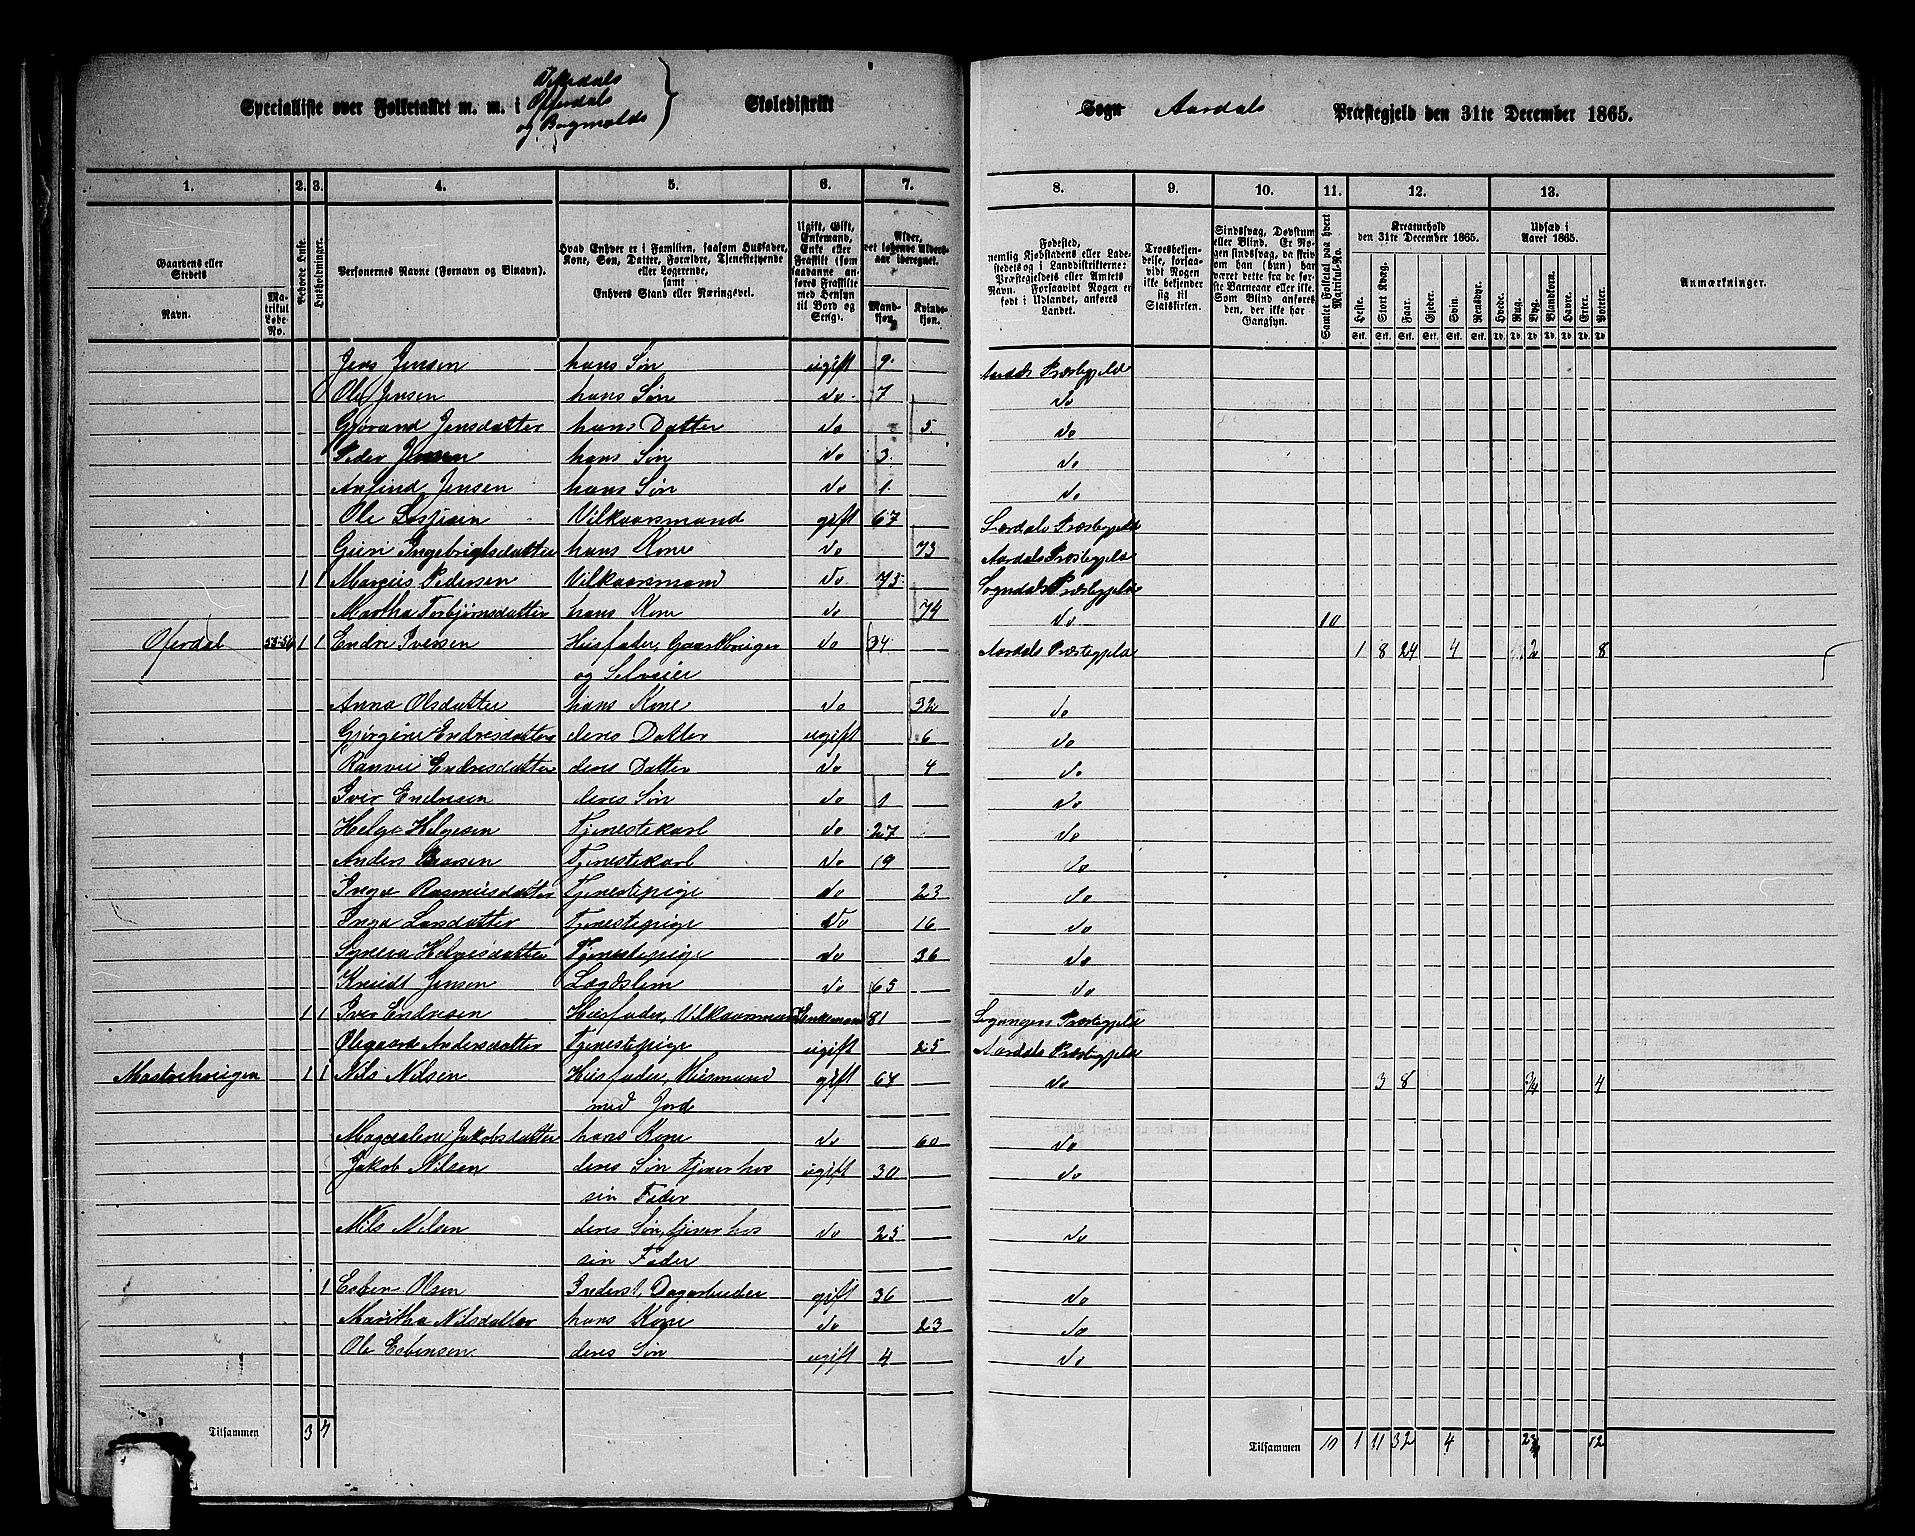 Specialliste over Folketallet m. m. i Offerdals Skoledistrikt
Sogn Aardals Præstegjeld den 31te December 1865.
1. 2. 3. 4. 5. 6. 7. 8. 9. 10. 11. 12. 13.
Gaardens eller Stedets
Navn.
Matrikul Løbe-No.
Beboede Huse.
Husholdninger.
Personernes Navne (Fornavn og Binavn).
Hvad Enhver er i Familien, saasom Husfader, Kone, Søn, Datter, Forældre, Tjenestetyende eller Logerende, samt Enhvers Stand eller Næringsvei.
Ugift, Gift, Enkemand, Enke eller Fraskilt (som saadanne anføres Fraskilte med Hensyn til Bord og Seng).
Alder, det løbende Alders-aar iberegnet.
Mandkjøn. Kvindekjøn.
Fødested, nemlig Kjøbstadens eller Ladestedets og i Landdistrikterne: Præstegjeldets eller Amtets Navn. Forsaavidt Nogen er født i Udlandet, anføres Landet.
Troesbekjendelse, forsaavidt Nogen ikke bekjender sig til Statskirken.
Sindssvag, Døvstum eller Blind.
Samlet Folketal paa hvert Matrikul-No.
Kreaturhold den 31te December 1865.
Heste. Stort Kvæg. Faar. Gjeder. Svin. Rensdyr.
Udsæd i Aaret 1865.
Hvede. Rug. Byg. Blandkorn. Havre. Erter. Poteter.
Anmærkninger.
Jens Jensen hans Søn ugift 9 Aardals Præstegjeld
Ole Jensen hans Søn do 7 do
Gjørand Jensdatter hans Datter do 5 do
Peder Jensen hans Søn do 3 do
Anfind Jensen hans Søn do 1 do
Ole gift 67 Lærdals Præstegjeld
Vilkaarsmand
Guri Ingebrigtsdatter hans Kone do 73 Aardals Præstegjeld
1 1 Marcus Pedersen Vilkaarsmand do 73 Sogndals Præstegjeld
Martha Torbjørnsdatter hans Kone do 74 do 10
Oferdal 55-56 1 1 Endre Iversen Husfader, Gaardbruger do 34 Aardals Præstegjeld 1 8 24 4 2 8
og Selveier
Anna Olsdatter hans Kone do 32 do
Gjørgine Endresdatter deres Datter ugift 6 do
Ranvei Endresdatter deres Datter do 4 do
Iver Endresen deres Søn do 1 do
Helge Helgesen Tjenestekarl do 27 do
Anders Tjenestekarl do 19 do
Inga Rasmusdatter Tjenestepige do 23 do
Inga Larsdatter Tjenestepige do 16 do
Synneva Helgesdatter Tjenestepige do 36 do
Knudt Jensen Lægdslem do 65 do
1 1 Iver Endresen Husfader, Vilkaarsmand Enkemand 81 Præstegjeld
Olegaard Andersdatter Tjenestepige ugift 25 Aardals Præstegjeld
1 1 Nils Nilsen Husfader, Husmand gift 67 do 3 8 3/4 4
med Jord
Magdalene Jakobsdatter hans Kone do 60 do
Jakob Nilsen deres Søn tjener hos ugift 30 do
sin Fader
Nils Nilsen deres Søn, tjener hos do 25 do
sin Fader
1 Esben Olsen Inderst, Dagarbeider gift 36 do
Maritha Nilsdatter hans Kone do 23 do
Ole Esbensen deres Søn ugift 4 do
Tilsammen 3 4 Tilsammen 10 1 11 32 4 2¾ 12